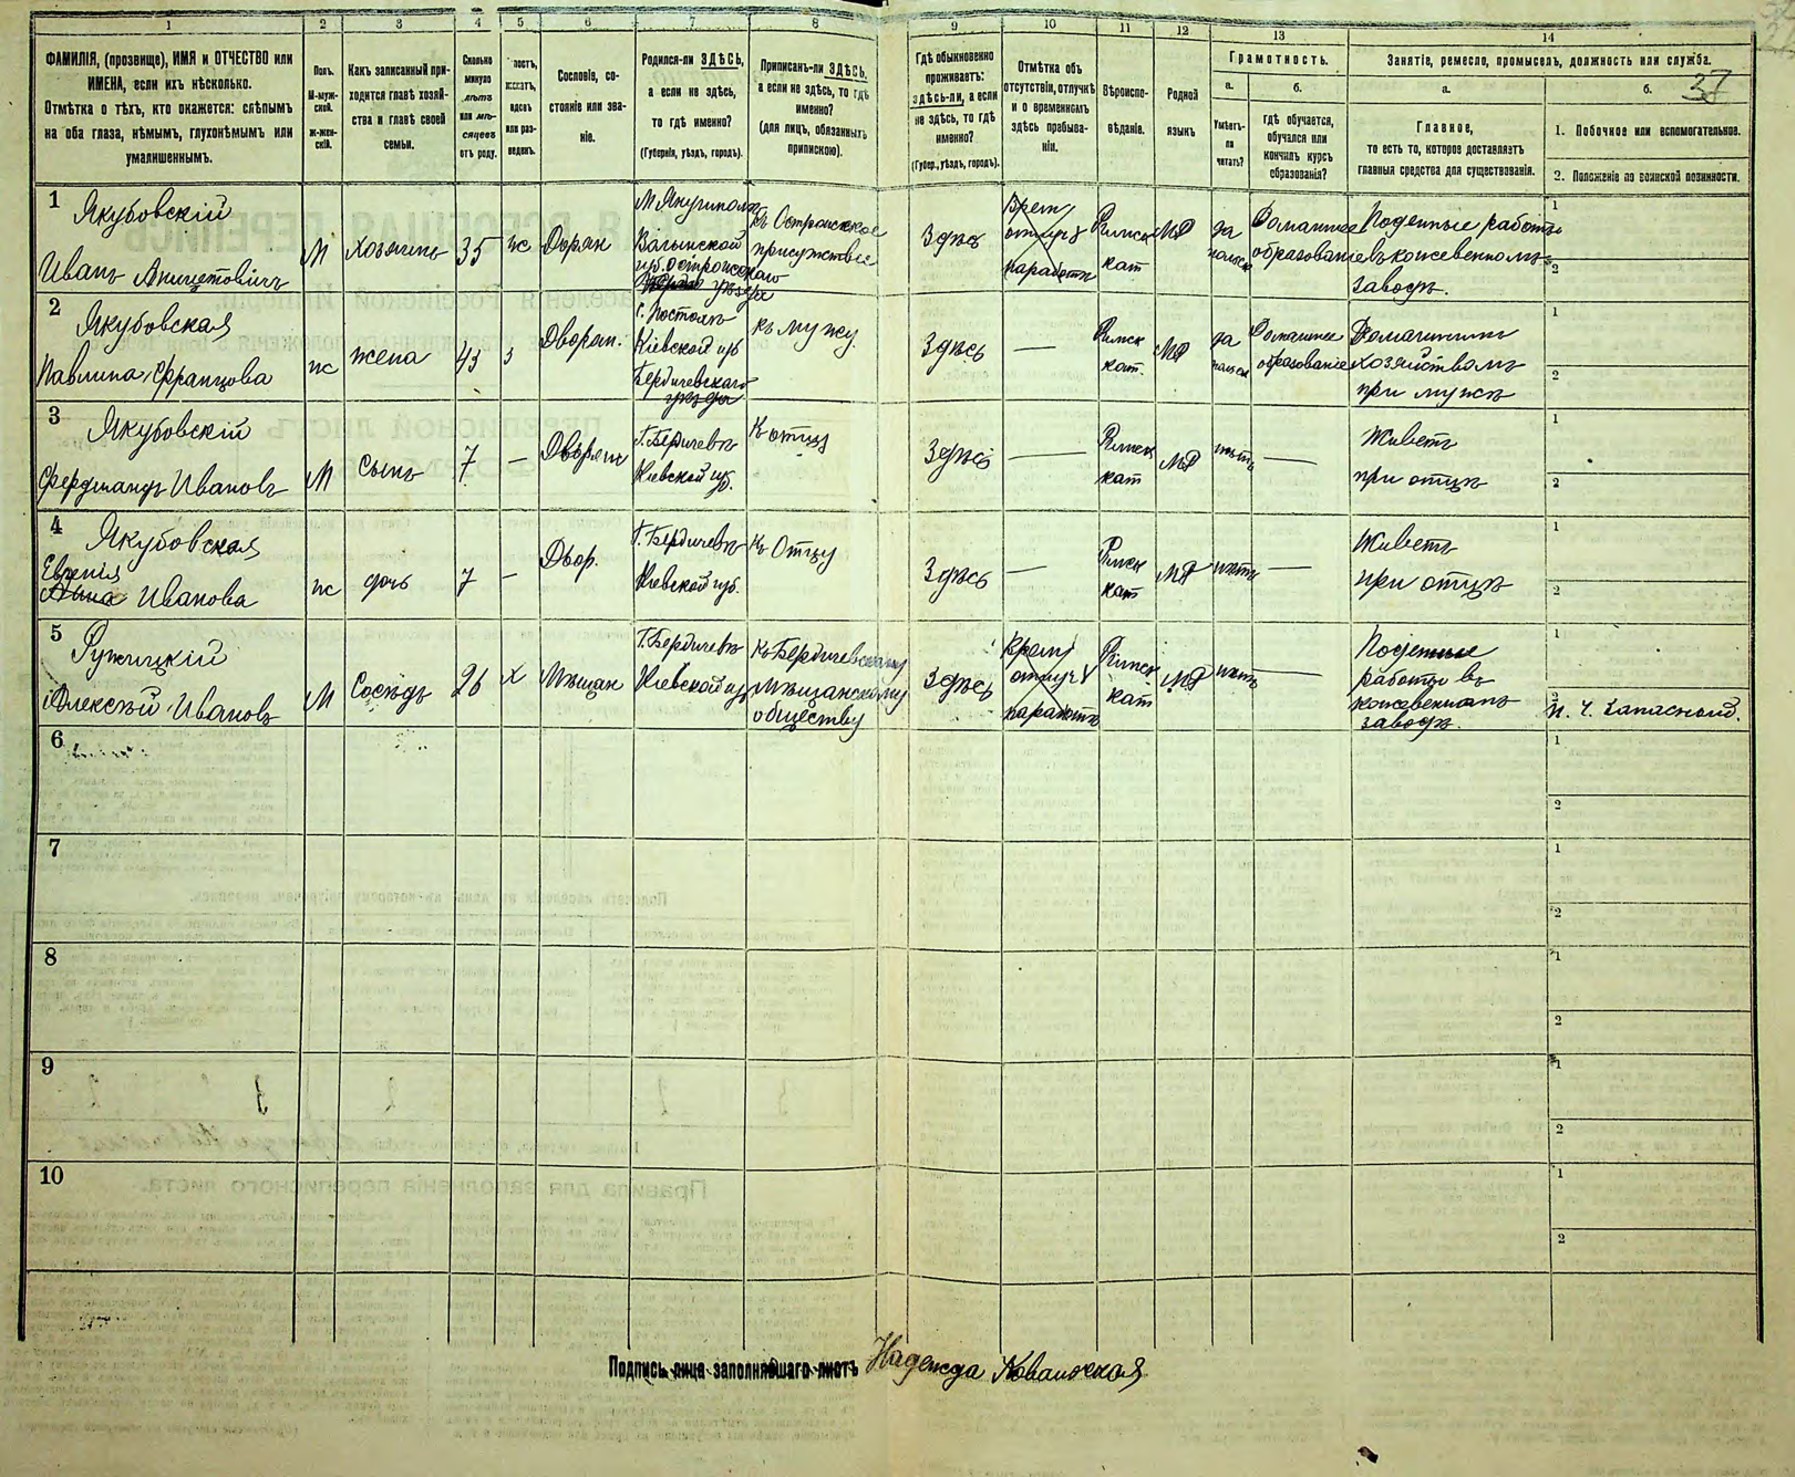 1 2 3 4 5 6 7 8 9 10 11 12 13 14
ФАМИЛІЯ, (прозвище), ИМЯ и ОТЧЕСТВО или
ИМЕНА, если ихъ нѣсколько.
Отмѣтка о тѣхъ, кто окажется: слѣпымъ
на оба глаза, нѣмымъ, глухонѣмымъ или
умалишеннымъ.
Полъ.
М-муж-
ской.
ж-жен-
скій.
Какъ записанный при-
ходится главѣ хозяй-
ства и главѣ своей
семьи.
Сколько
минуло
лѣтъ
или мѣ-
сяцевъ
отъ роду.
постъ,
женатъ,
вдовъ
или раз-
веденъ.
Сословіе, со-
стояніе или зва-
ніе.
Родился-ли ЗДѢСЬ,
а если не здѣсь,
то гдѣ именно?
(Губернія, уѣздъ, городъ).
Приписанъ-ли ЗДѢСЬ,
а если не здѣсь, то гдѣ
именно?
(для лицъ, обязанныхъ
припискою).
Гдѣ обыкновенно
проживаетъ:
здѣсь-ли, а если
не здѣсь, то гдѣ
именно?
(Губер., уѣздъ, городъ).
Отмѣтка объ
отсутствіи, отлучкѣ
и о временномъ
здѣсь пребыва-
ніи.
Вѣроиспо-
вѣданіе.
Родной
языкъ
Грамотность.
а.
Умѣетъ-
ли
читать?
б.
гдѣ обучается,
обучался или
кончилъ курсъ
образованія?
Занятіе, ремесло, промыселъ, должность или служба.
37
а.
Главное,
то есть то, которое доставляетъ
главныя средства для существованія.
б.
1. Побочное или вспомогательное.
2. Положеніе по воинской повинности.
1
Якубовскій
Иванъ Аницетовичъ
М
Хозяинъ
35
ж
Дворян
Волынской
губ. Острожскаго
уѣзда
Къ Острожское
присутствіе
Здѣсь
Врем
отлуч
на работы
Римск
кат
да
польск
Домашнее
образованіе
Поденные работы
въ кожевенномъ
заводѣ.
1
2
2
Якубовская
Павлина Францова
ж
жена
43
з
Дворян.
Кіевской губ
Бердичевскаго
уѣзда
къ мужу.
Здѣсь
—
Римск
кат.
да
польск
Домашнее
образованіе
Домашнимъ
хозяйствомъ
при мужѣ
1
2
3
Якубовскій
Фердинандъ Ивановъ
М
Сынъ
7
—
Дворян
Г. Бердичевъ
Кіевской губ.
К отцу
Здѣсь
—
Римск
кат
нѣтъ
—
Живетъ
при отцѣ
1
2
4
Якубовская
Евгенія
Анна Иванова
ж
дочь
7
—
Двор.
Г. Бердичевъ
Кіевской губ.
Къ Отцу
Здѣсь
—
Римск
кат
нѣтъ
—
Живетъ
при отцѣ
1
2
5
Ружицкій
Алексѣй Ивановъ
М
Сосѣдъ
26
х
Мѣщан
Г. Бердичевъ
Кіевской губ
Къ Бердичевскому
Мѣщанскому
обществу
Здѣсь
Врем
отлуч
на работы
Римск
кат
нѣтъ
—
Поденные
работы въ
кожевенномъ
заводѣ.
1
2
и. ч. Запасной.
6
1
2
7
1
2
8
1
2
9
1
2
10
1
2
Подпись лица заполнявшаго листъ Надежда